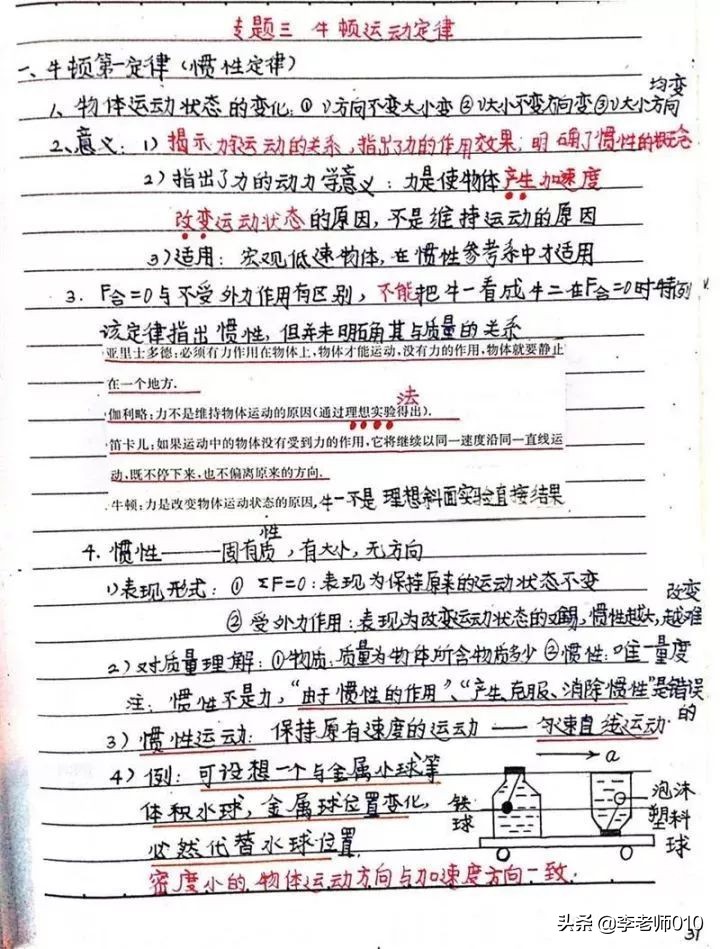 专题三 牛顿运动定律
一、牛顿第一定律(惯性定律)
1、物体运动状态的变化:①v方向不变大小变②v大小不变方向变③v大小方向均变
2、意义:1)揭示力和运动的关系,指出了力的作用效果,明确了惯性的概念
2)指出了力的动力学意义:力是使物体产生加速度
改变运动状态的原因,不是维持运动的原因
3)适用:宏观低速物体,在惯性参考系中才适用
3.F合=0与不受外力作用有区别,不能把牛一看成牛二在F合=0时特例
该定律指出惯性,但并未明确其与质量的关系
亚里士多德:必须有力作用在物体上,物体才能运动,没有力的作用,物体就要静止
在一个地方.
伽利略:力不是维持物体运动的原因(通过理想实验法得出).
笛卡儿:如果运动中的物体没有受到力的作用,它将继续以同一速度沿同一直线运
动,既不停下来,也不偏离原来的方向.
牛顿:力是改变物体运动状态的原因,牛一不是理想斜面实验直接结果
4.惯性——固有性质,有大小,无方向
1)表现形式:①ΣF=0:表现为保持原来的运动状态不变
②受外力作用:表现为改变运动状态的难易,惯性越大,越难改变
2)对质量理解:①物质:质量为物体所含物质多少②惯性:唯一量度
注:惯性不是力,“由于惯性的作用”、“产生、克服、消除惯性”是错误的
3)惯性运动:保持原有速度的运动——匀速直线运动.
4)例:可设想一个与金属小球等
体积水球,金属球位置变化,
必然代替水球位置
密度小的物体运动方向与加速度方向一致.
a
铁球
泡沫塑料球
头条@李老师010
31